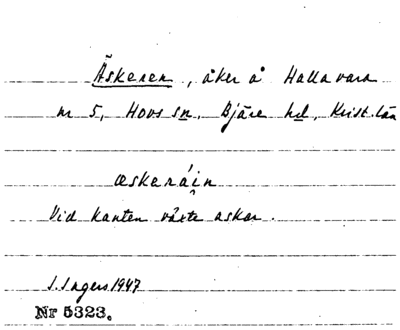 Äskeren, åker å Hallavara
nr 5, Hovs sn, Bjäre hd, Krist. län
æskeráin
Vid kanten växte askar.
I. Ingers 1947
Nr 5323.